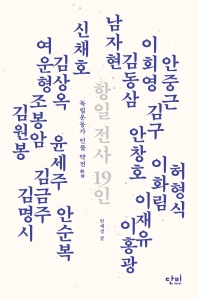 안중근
이회영
김동삼
남자현
신채호
김상옥
여운형
조봉암
김원봉
항일 전사 19인
독립운동가 인물 약전略傳
안재성 글
허형식
이화림
김구
이재유
안창호
이홍광
안순복
윤세주
김금주
김명시
단비